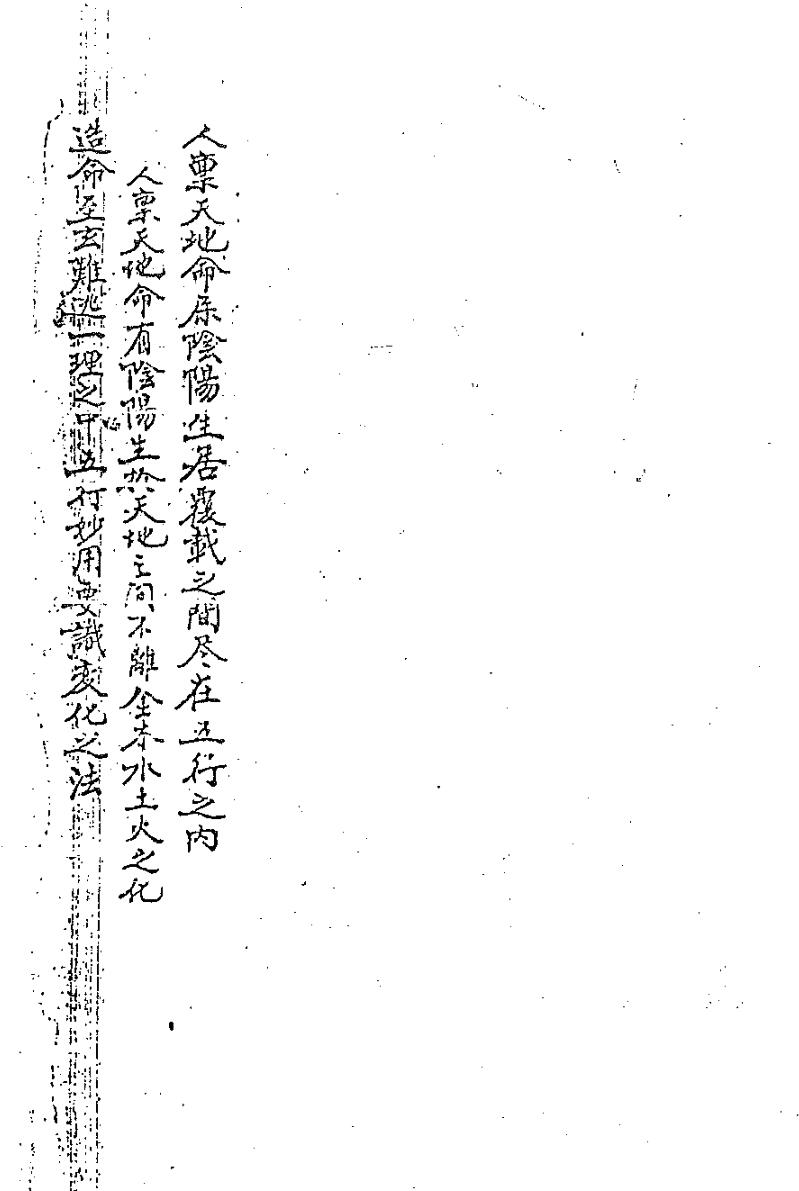 人禀天地命屬陰陽生居覆載之間尽在五行之内
人禀天地命有陰陽生於天地之間不離金木水土火之化
造命至玄難逃一理之中五行妙用要識変化之法